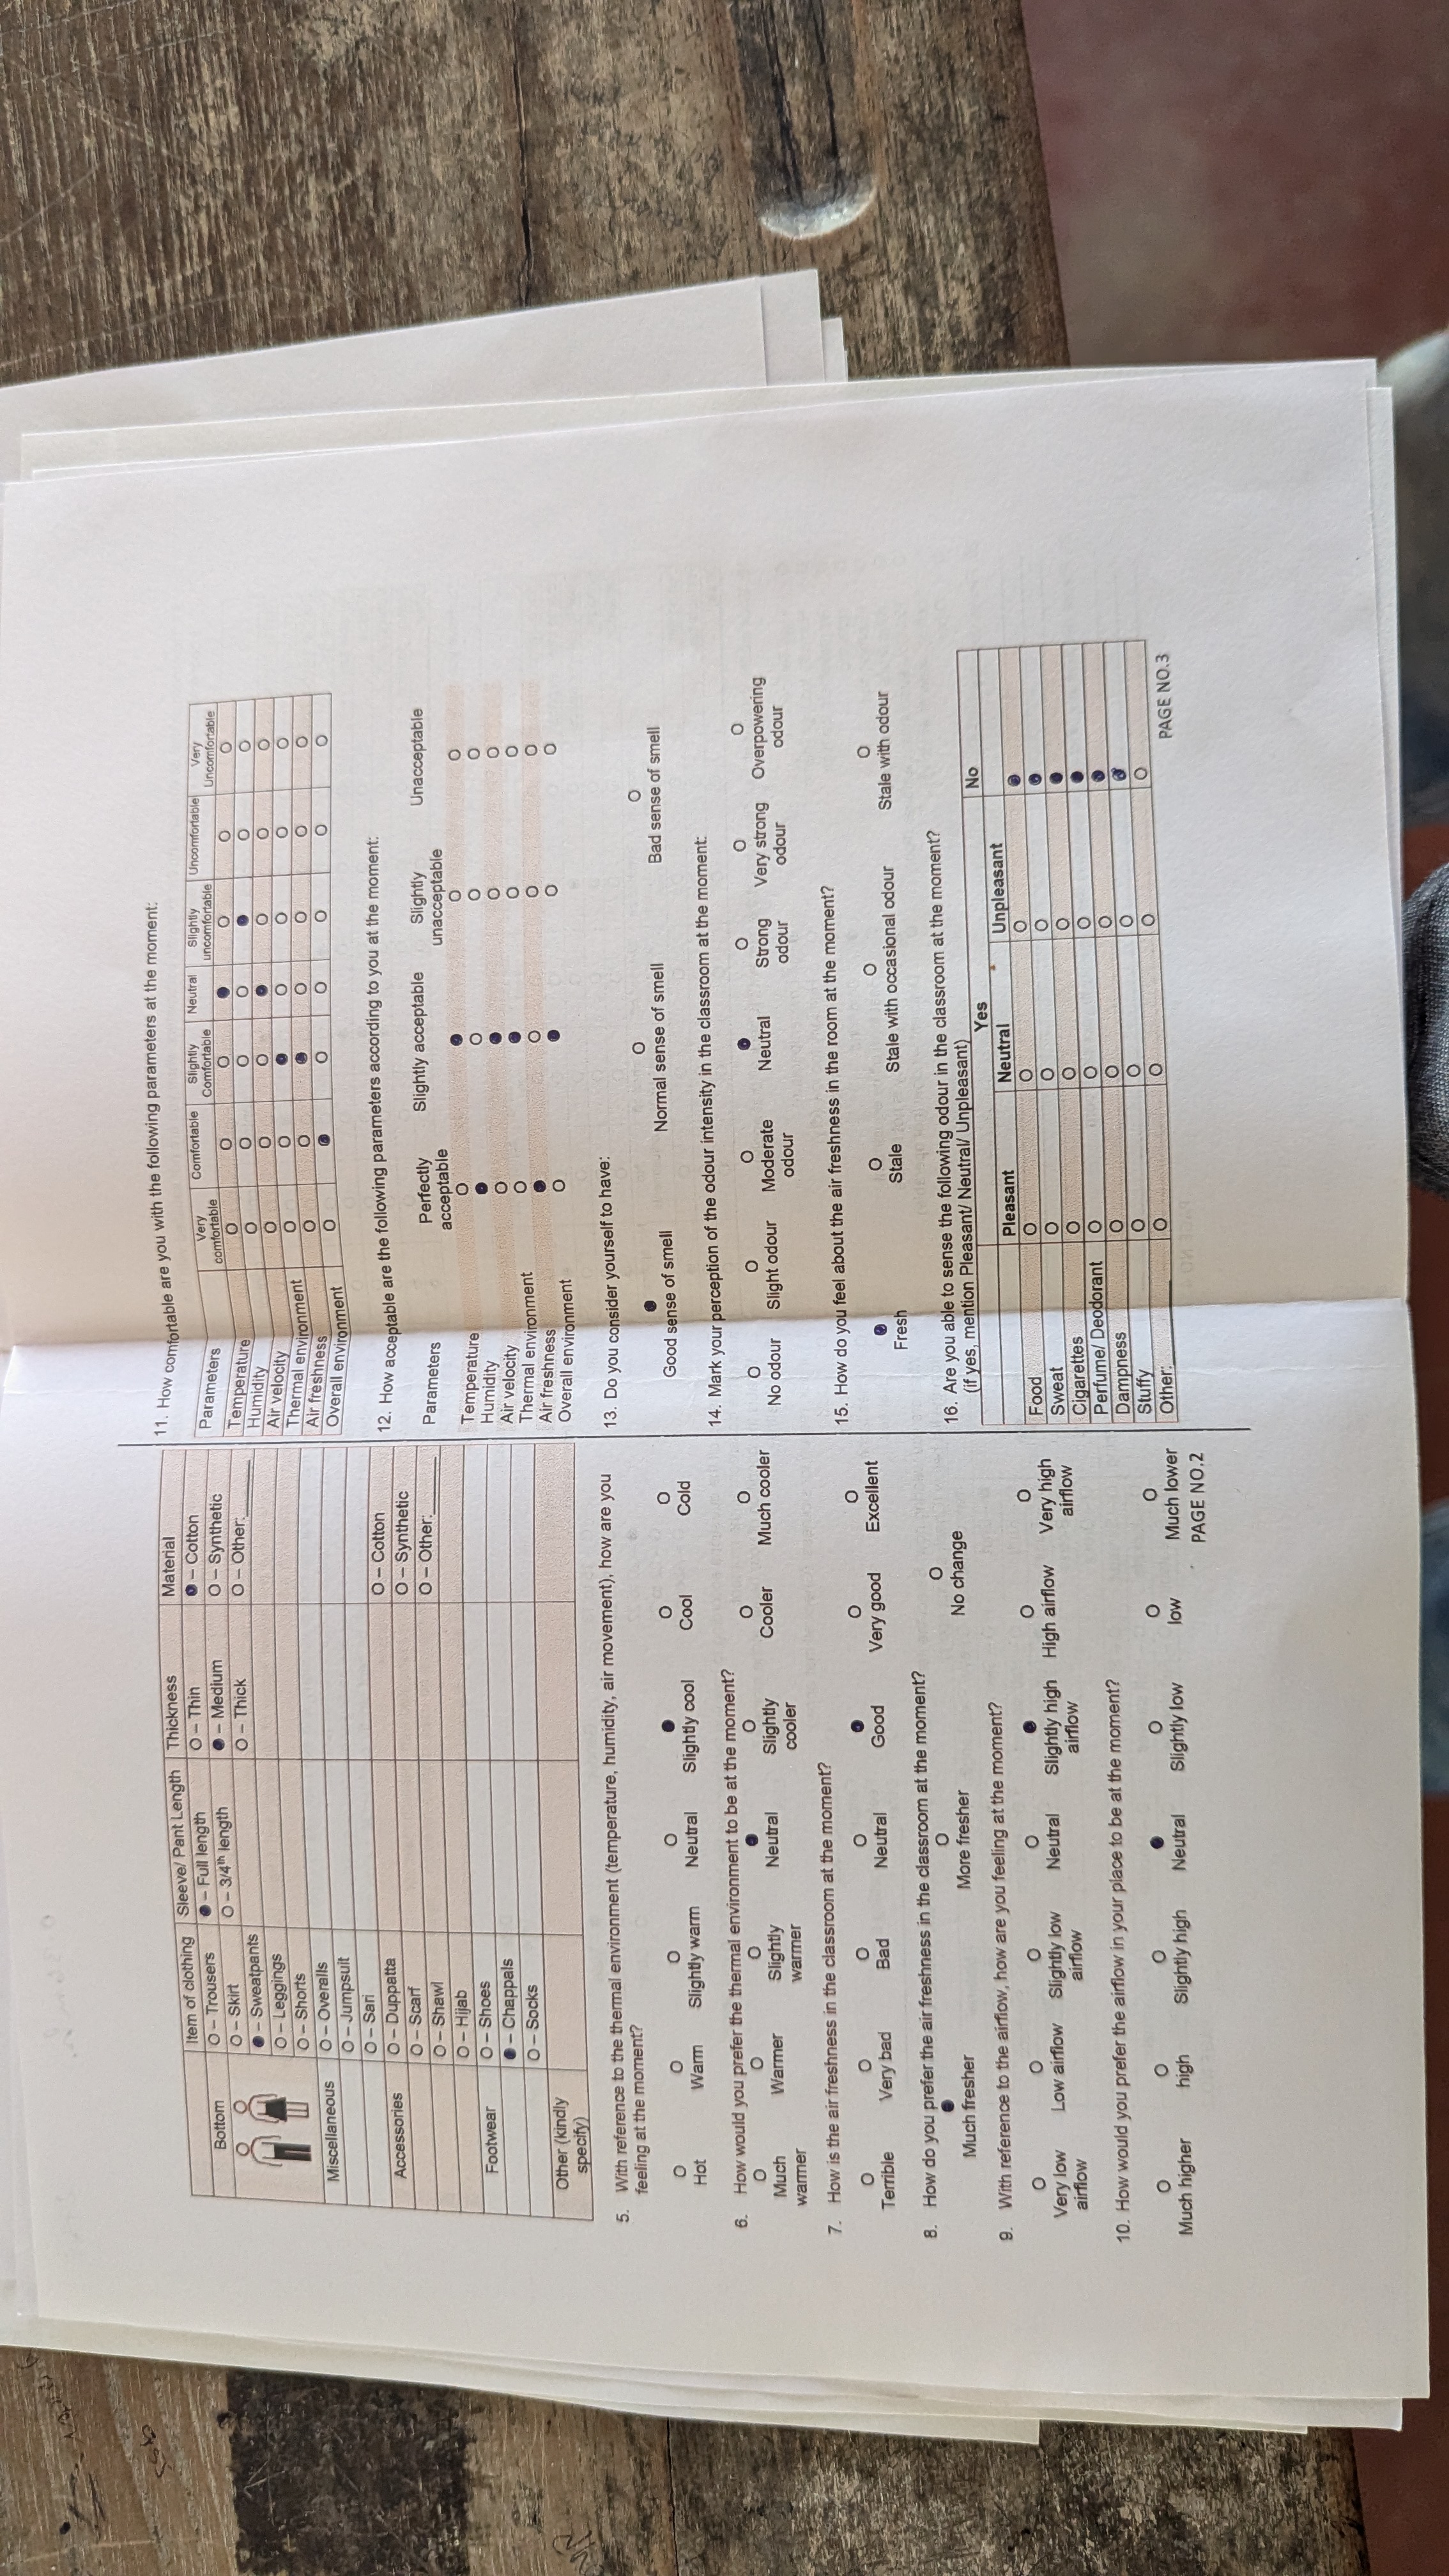 Item of clothing Sleeve/ Pant Length Thickness Material
Bottom O – Trousers ● – Full length O – Thin ● – Cotton
O – Skirt O – 3/4th length ● – Medium O – Synthetic
● – Sweatpants O – Thick O – Other:______
O – Leggings
O – Shorts
Miscellaneous O – Overalls
O – Jumpsuit
O – Sari
Accessories O – Duppatta O – Cotton
O – Scarf O – Synthetic
O – Shawl O – Other:______
O – Hijab
Footwear O – Shoes
● – Chappals
O – Socks
Other (kindly
specify)
5. With reference to the thermal environment (temperature, humidity, air movement), how are you
feeling at the moment?
O O O O ● O O
Hot Warm Slightly warm Neutral Slightly cool Cool Cold
6. How would you prefer the thermal environment to be at the moment?
O O O ● O O O
Much Warmer Slightly Neutral Slightly Cooler Much cooler
warmer warmer cooler
7. How is the air freshness in the classroom at the moment?
O O O O ● O O
Terrible Very bad Bad Neutral Good Very good Excellent
8. How do you prefer the air freshness in the classroom at the moment?
● O O
Much fresher More fresher No change
9. With reference to the airflow, how are you feeling at the moment?
O O O O ● O O
Very low Low airflow Slightly low Neutral Slightly high High airflow Very high
airflow airflow airflow airflow
10. How would you prefer the airflow in your place to be at the moment?
O O O ● O O O
Much higher high Slightly high Neutral Slightly low low Much lower
PAGE NO.2
11. How comfortable are you with the following parameters at the moment:
Parameters Very Comfortable Slightly Neutral Slightly Uncomfortable Very
comfortable Comfortable uncomfortable Uncomfortable
Temperature O O O ● O O O
Humidity O O O O ● O O
Air velocity O O O ● O O O
Thermal environment O O ● O O O O
Air freshness O O ● O O O O
Overall environment O ● O O O O O
12. How acceptable are the following parameters according to you at the moment:
Parameters Perfectly Slightly acceptable Slightly Unacceptable
acceptable unacceptable
Temperature O ● O O
Humidity ● O O O
Air velocity O ● O O
Thermal environment O ● O O
Air freshness ● O O O
Overall environment O ● O O
13. Do you consider yourself to have:
● O O
Good sense of smell Normal sense of smell Bad sense of smell
14. Mark your perception of the odour intensity in the classroom at the moment:
O O O ● O O O
No odour Slight odour Moderate Neutral Strong Very strong Overpowering
odour odour odour odour
15. How do you feel about the air freshness in the room at the moment?
● O O O
Fresh Stale Stale with occasional odour Stale with odour
16. Are you able to sense the following odour in the classroom at the moment?
(if yes, mention Pleasant/ Neutral/ Unpleasant)
Yes No
Pleasant Neutral Unpleasant
Food O O O ●
Sweat O O O ●
Cigarettes O O O ●
Perfume/ Deodorant O O O ●
Dampness O O O ●
Stuffy O O O ●
Other:________ O O O O
PAGE NO.3